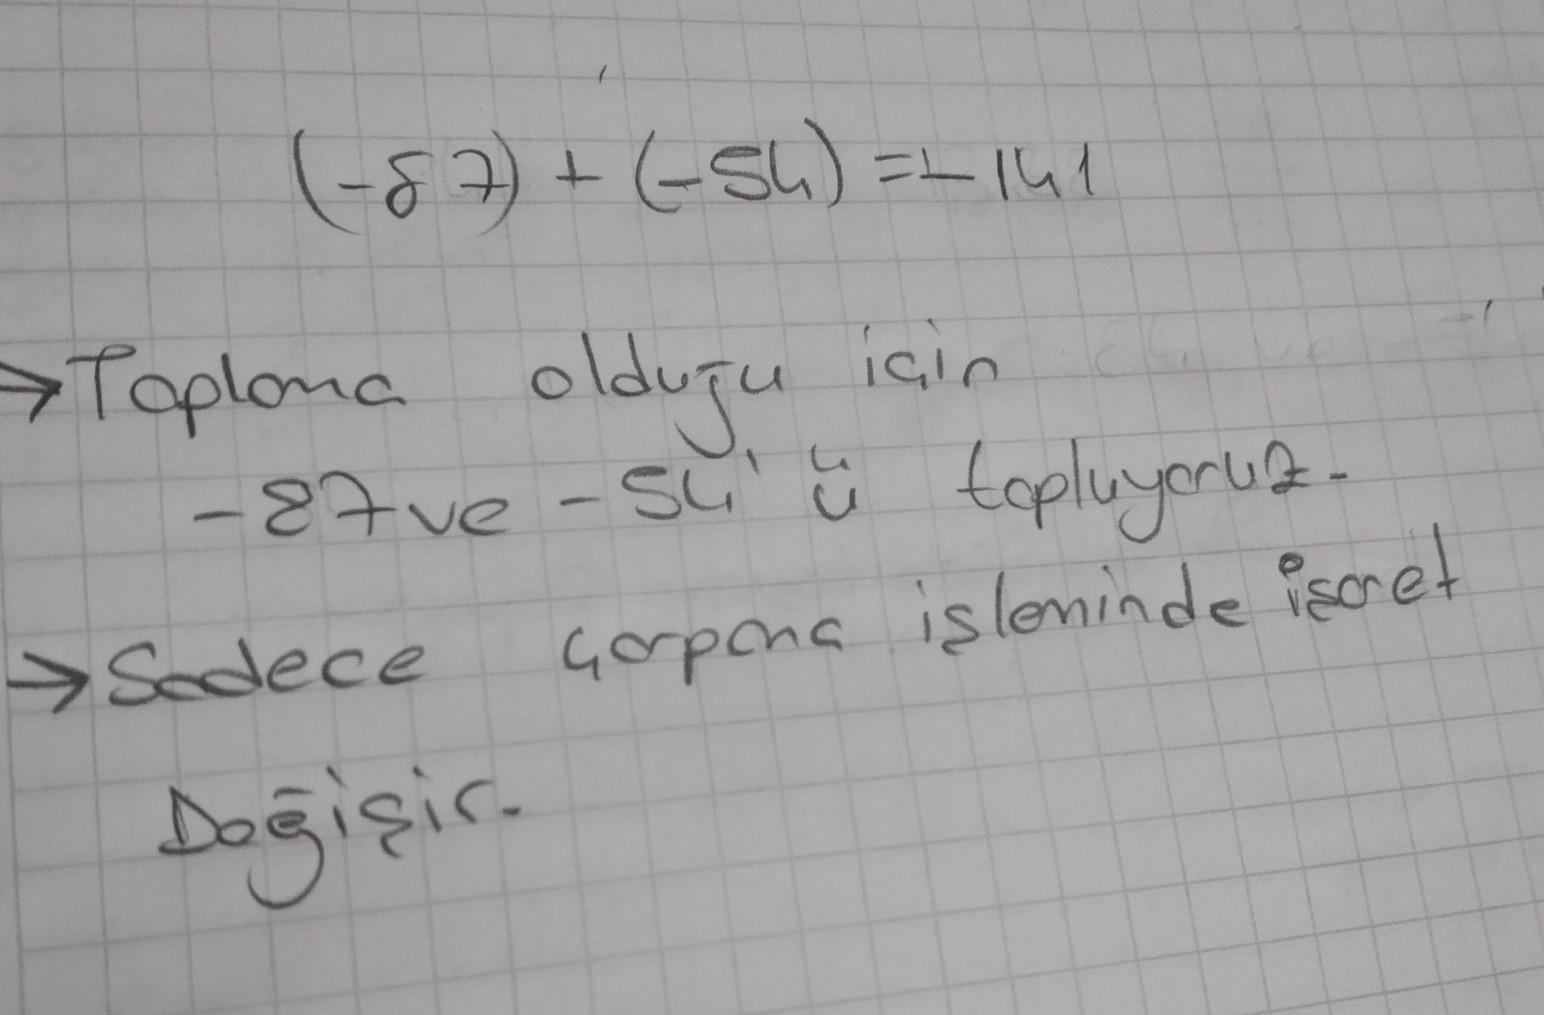 (-87) + (-54) = -141
→ Toplama olduğu için
-87 ve -54'ü topluyoruz.
→ Sadece çarpma işleminde işaret
Değişir.